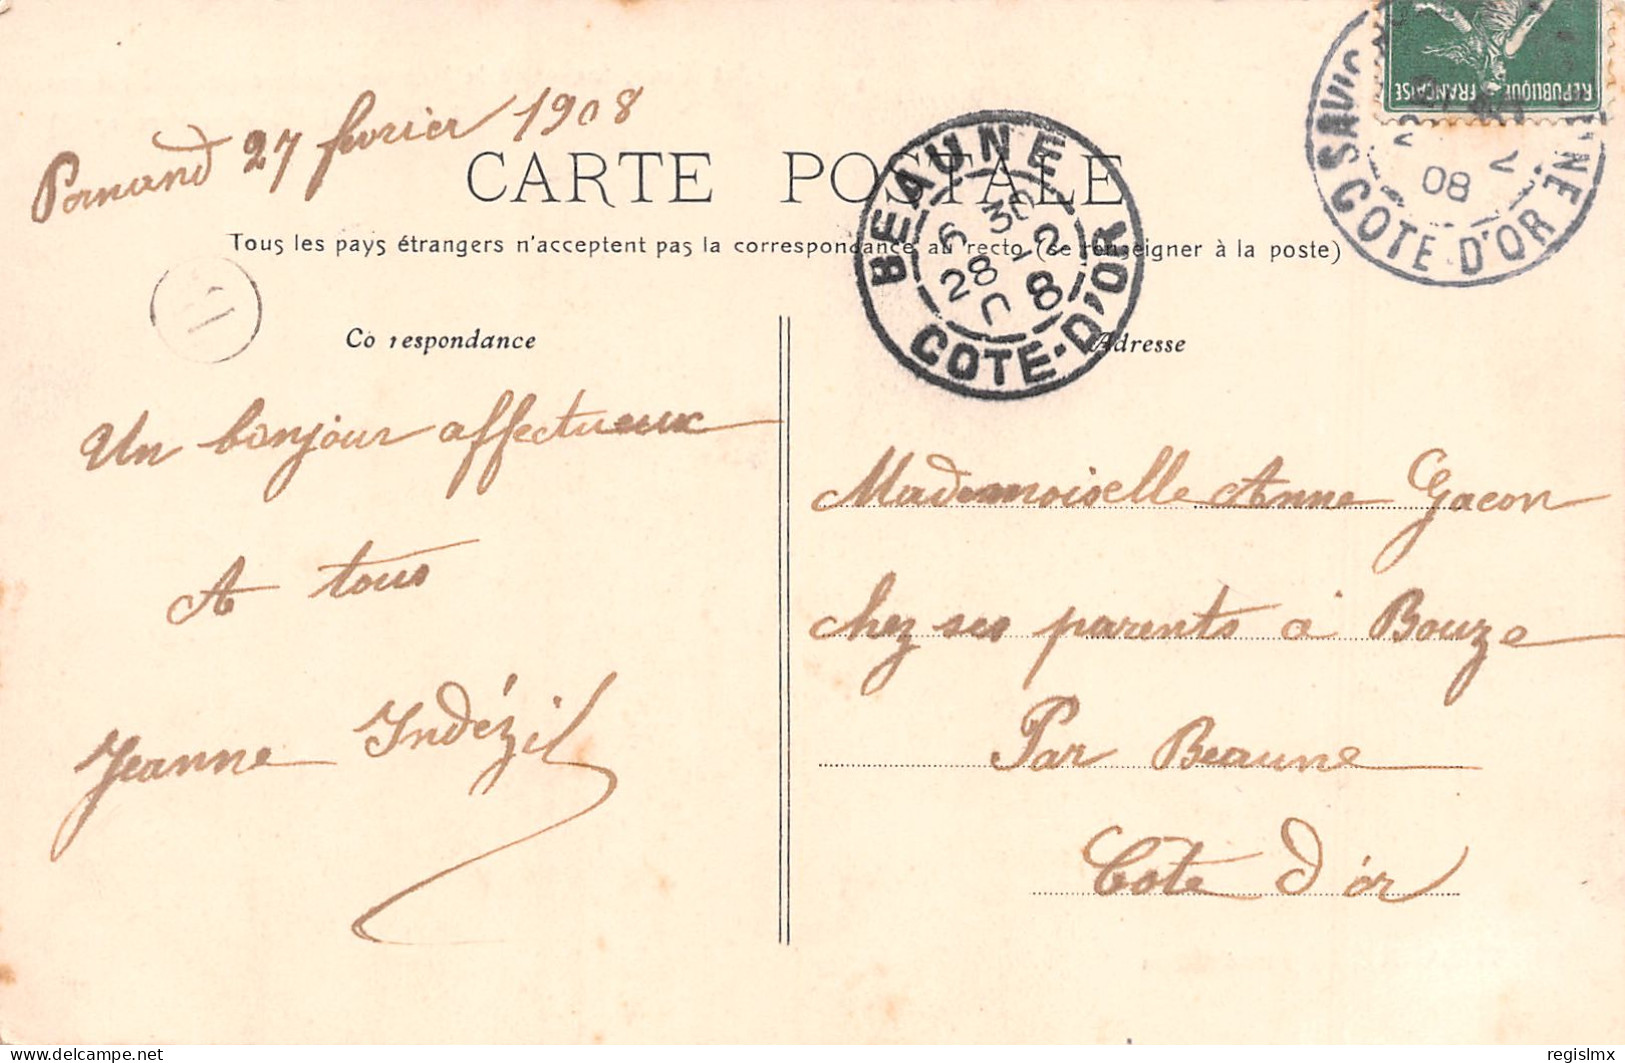 Pernand 27 fevrier 1908
CARTE POSTALE
Tous les pays étrangers n'acceptent pas la correspondance au recto (se renseigner à la poste)
Co respondance
Adresse
BEAUNE
6 30
28 - 2
08
COTE-D'OR
REPUBLIQUE FRANÇAISE
08
COTE D'OR
Un bonjour affectueux
A tous
Jeanne Indézil
Mademoiselle Anne Gacon
chez ses parents à Bouze
Par Beaune
Cote d'or
delcampe.net
regislmx